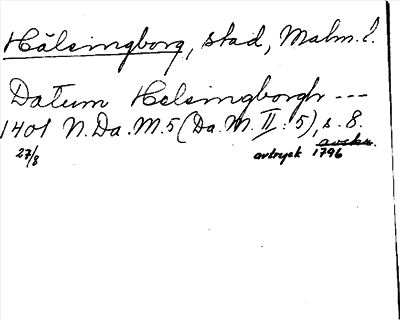 Hälsingborg, stad, Malm. l.
Datum Helsingborgh ---
1401 N. Da. M. 5 (Da. M. II: 5), s. 8.
27/8 avtryck 1796 avskr.